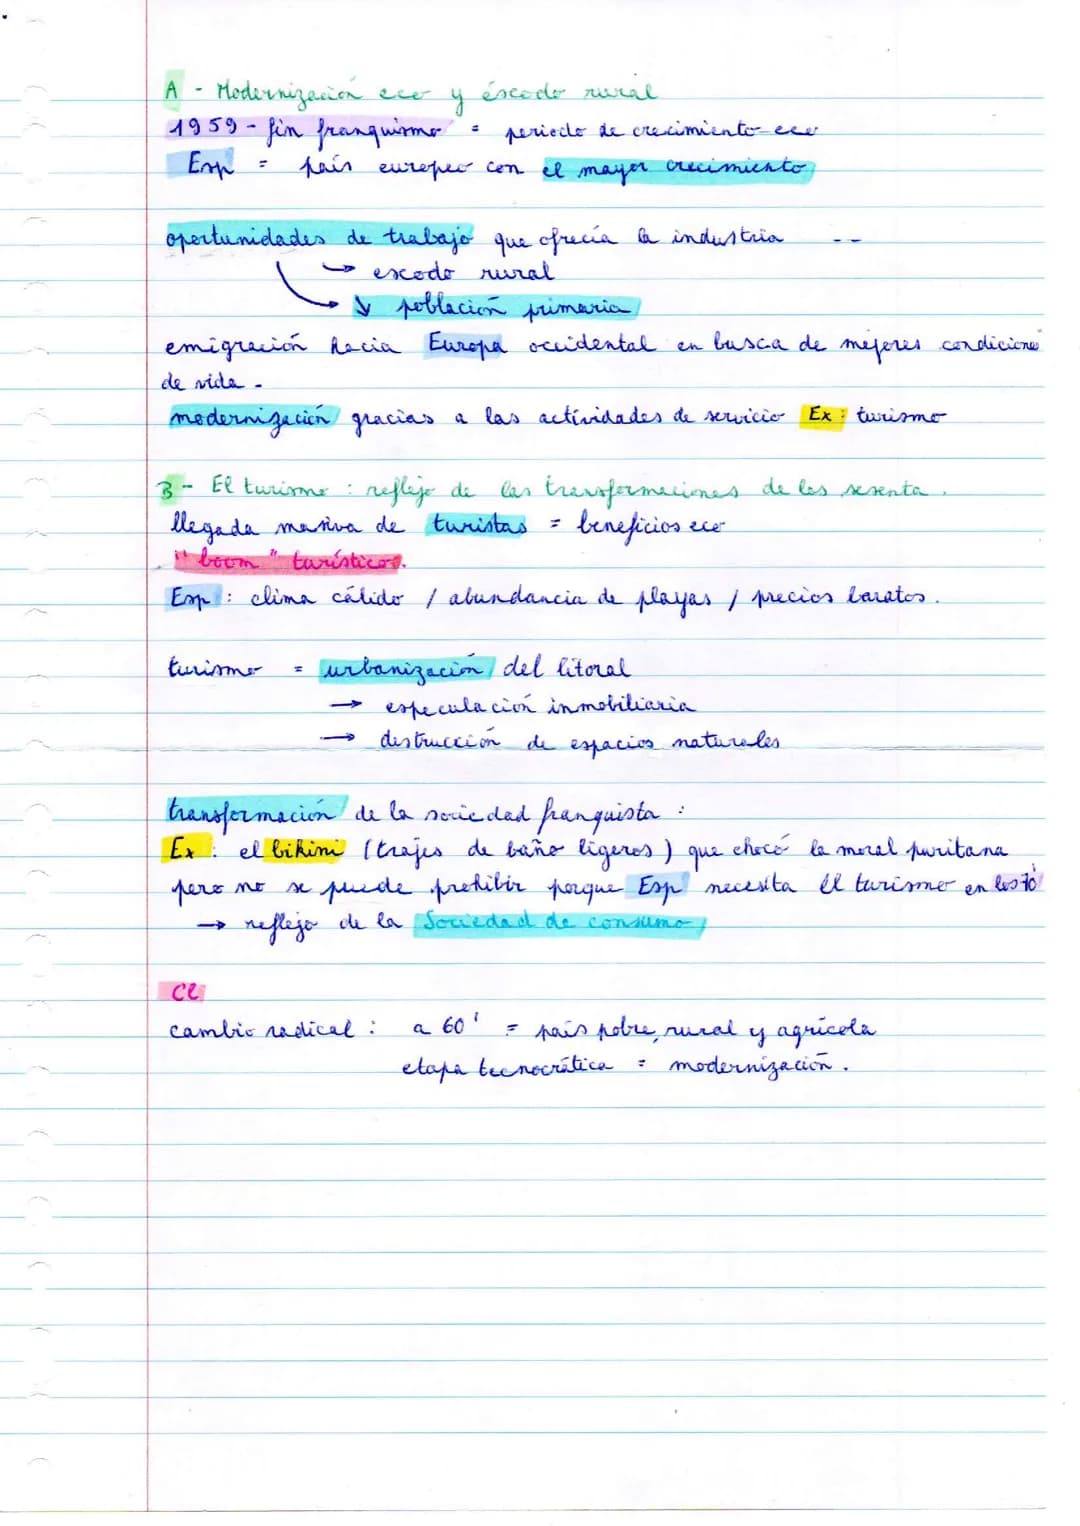 A - Modernización eco y éscodo rural
1959 - fin franquismo = periodo de crecimiento eco
Esp = país europeo con el mayor crecimiento
oportunidades de trabajo que ofrecía la industria --
→ escodo rural
→ ↘ población primaria
emigración hacia Europa occidental en busca de mejores condiciones
de vida.
modernización gracias a las actividades de servicio Ex : turismo
B - El turismo : reflejo de las transformaciones de los sesenta.
llegada masiva de turistas = beneficios eco
"boom" turísticos.
Esp : clima cálido / abundancia de playas / precios baratos.
turismo = urbanización del litoral
→ especulación inmobiliaria
→ destrucción de espacios naturales
transformación de la sociedad franquista :
Ex : el bikini (trajes de baño ligeros) que chocó la moral puritana
pero no se puede prohibir porque Esp necesita el turismo en los 70'
→ reflejo de la Sociedad de consumo
Cl
cambio radical : a 60' = país pobre, rural y agrícola
etapa tecnocrática = modernización.